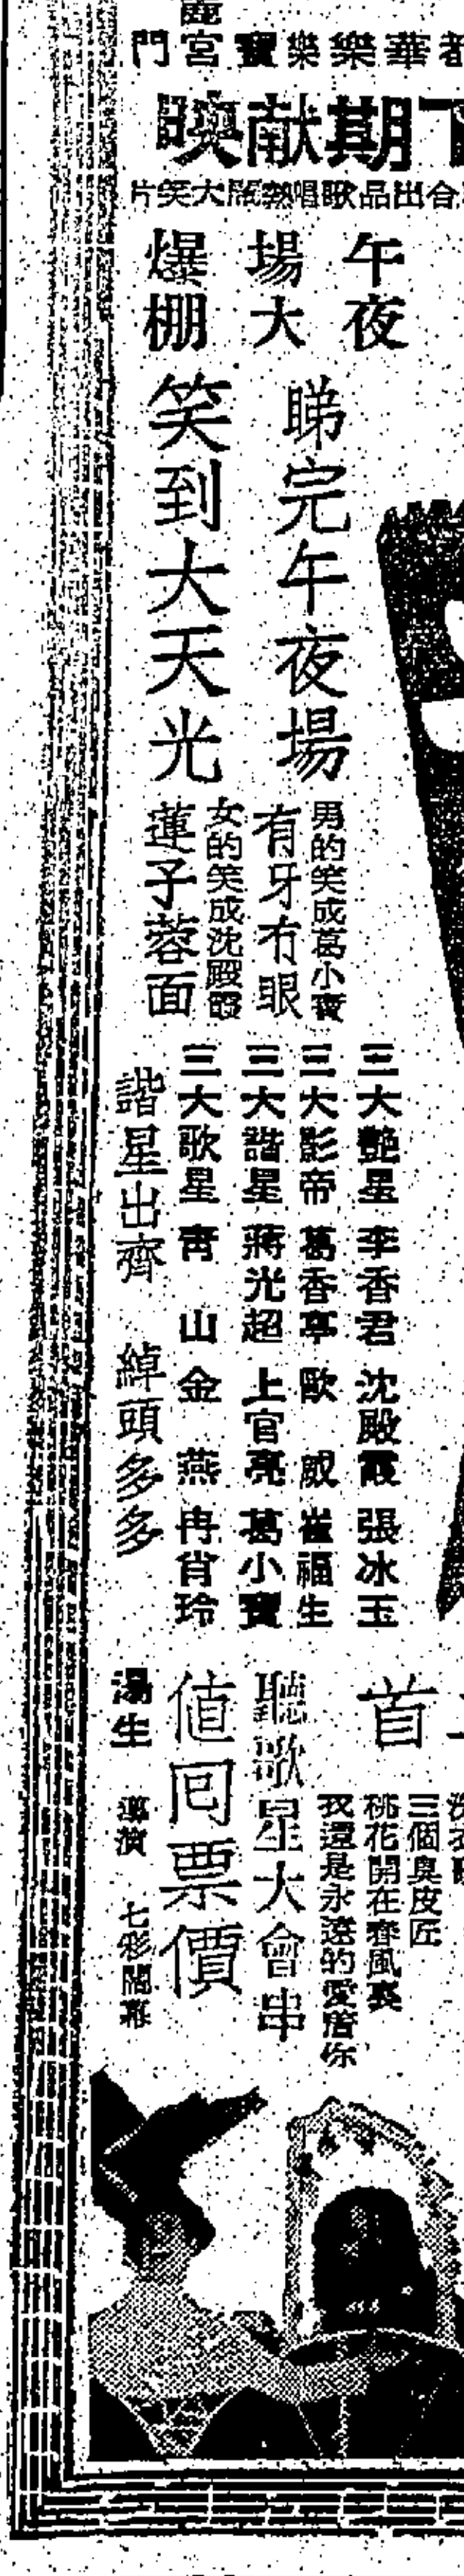 都華樂樂寶宮門
下期献映
合出品歌唱熱鬧大笑片
午夜
場大
爆棚
睇完午夜場
笑到大天光
男的笑成葛小寶
有牙冇眼
女的笑成沈殿霞
蓮子蓉面
三大艷星 李香君 沈殿霞 張冰玉
三大影帝 葛香亭 歐威 崔福生
三大諧星 蔣光超 上官亮 葛小寶
三大歌星 青山 金燕 冉肖玲
諧星出齊 綽頭多多
首
三個臭皮匠
桃花開在春風裏
我還是永遠的愛着你
聽歌星大會串
值回票價
湯生 導演 七彩闊幕